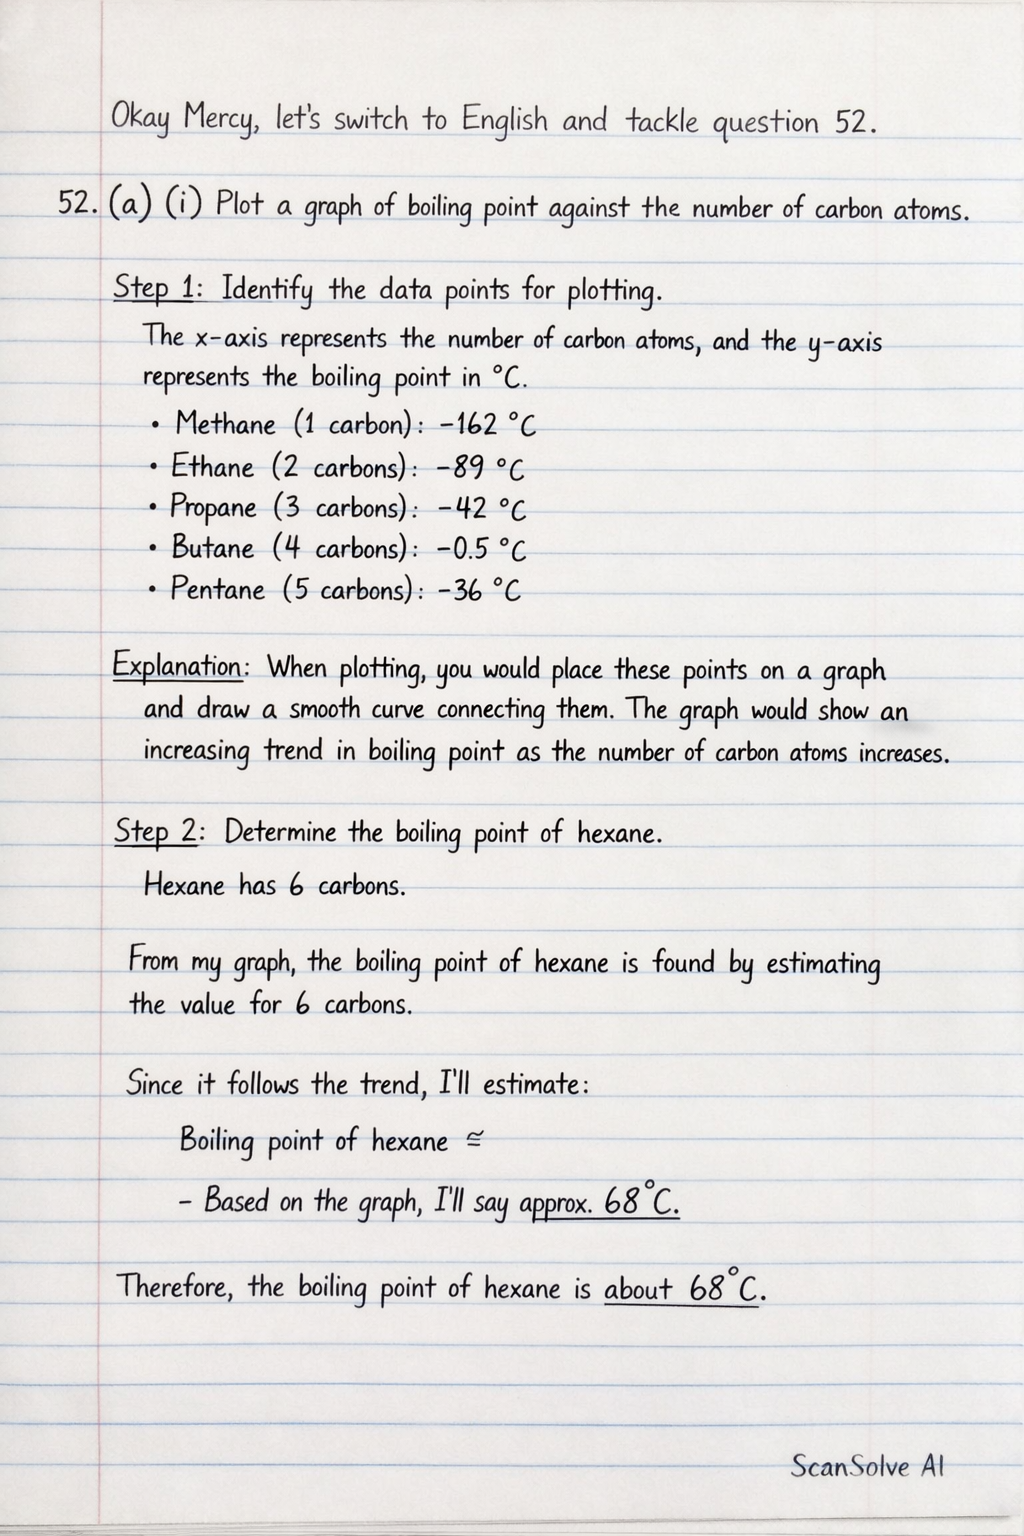 Okay Mercy, let's switch to English and tackle question 52.
52. (a) (i) Plot a graph of boiling point against the number of carbon atoms.
Step 1: Identify the data points for plotting.
The x-axis represents the number of carbon atoms, and the y-axis
represents the boiling point in °C.
• Methane (1 carbon): -162 °C
• Ethane (2 carbons): -89 °C
• Propane (3 carbons): -42 °C
• Butane (4 carbons): -0.5 °C
• Pentane (5 carbons): -36 °C
Explanation: When plotting, you would place these points on a graph
and draw a smooth curve connecting them. The graph would show an
increasing trend in boiling point as the number of carbon atoms increases.
Step 2: Determine the boiling point of hexane.
Hexane has 6 carbons.
From my graph, the boiling point of hexane is found by estimating
the value for 6 carbons.
Since it follows the trend, I'll estimate:
Boiling point of hexane ≅
- Based on the graph, I'll say approx. 68°C.
Therefore, the boiling point of hexane is about 68°C.
ScanSolve AI